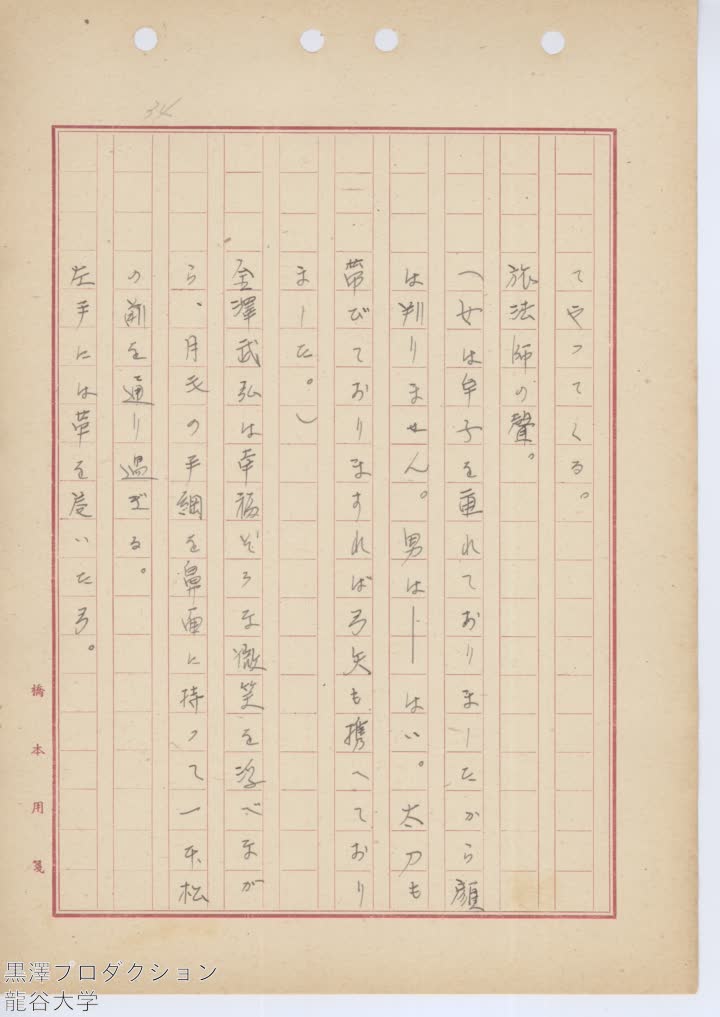 34
てやってくる。
旅法師の聲。
(女は牟子を垂れておりましたから顔
は判りません。男は──はい。太刀も
帯びておりますれば弓矢も携へており
ました。)
金澤武弘は幸福そうな微笑を浮べなが
ら、月毛の手綱を鼻面に持って一本松
の前を通り過ぎる。
左手には革を巻いた弓。
橋本用箋
黒澤プロダクション
龍谷大学